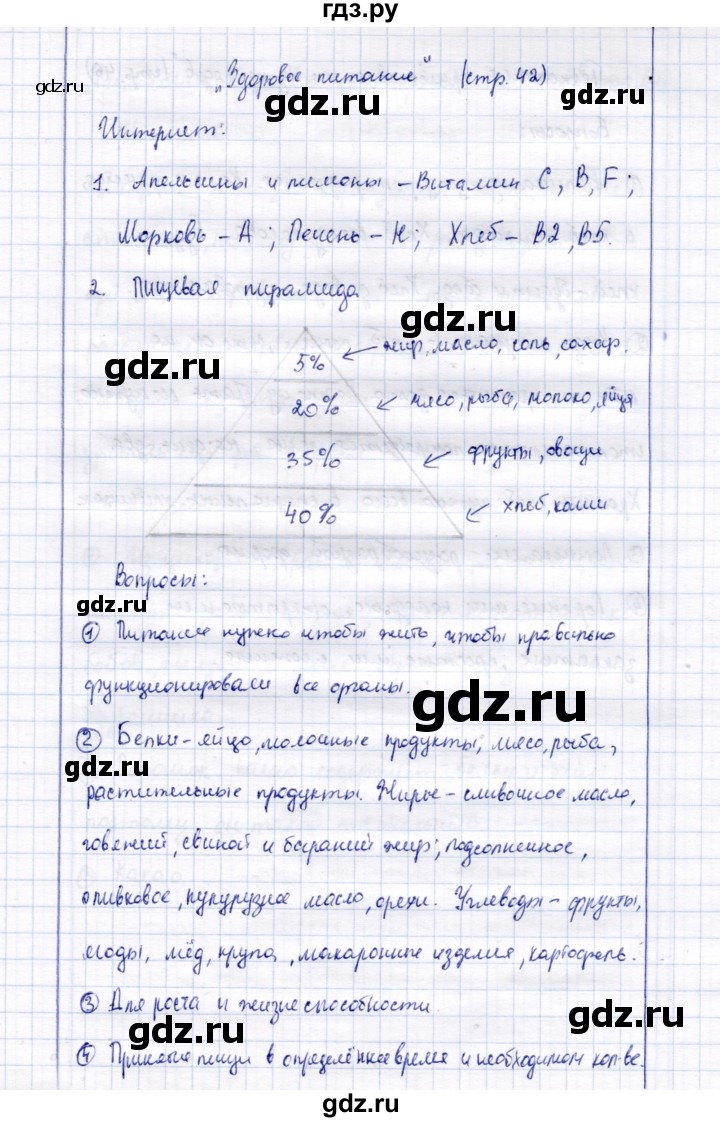 гдз.ру
gdz.ru
„Здоровое питание" (стр. 42)
gdz.ru
gdz.ru
Интернет:
1. Апельсины и лимоны – Витамин С, В, F;
gdz.ru
Морковь – А; Печень – К; Хлеб – В2, В5.
gdz.ru
2. Пищевая пирамида
gdz.ru
5% жир, масло, соль, сахар.
gdz.ru
20% мясо, рыба, молоко, яйця
35% фрукты, овощи
40% хлеб, каши
Вопросы:
gdz.ru
① Питание нужно чтобы жить, чтобы правильно
функционировали все органы.
gdz.ru
② Белки – яйцо, молочные продукты, мясо, рыба,
gdz.ru
растительные продукты. Жиры – сливочное масло,
говяжий, свиной и бараний жир, подсолнечное,
оливковое, кукурузное масло, орехи. Углеводы – фрукты,
gdz.ru
ягоды, мёд, крупа, макаронные изделия, картофель.
③ Для роста и жизнеспособности.
gdz.ru
④ Принятие пищи в определённое время и необходимом кол-ве.
gdz.ru
gdz.ru